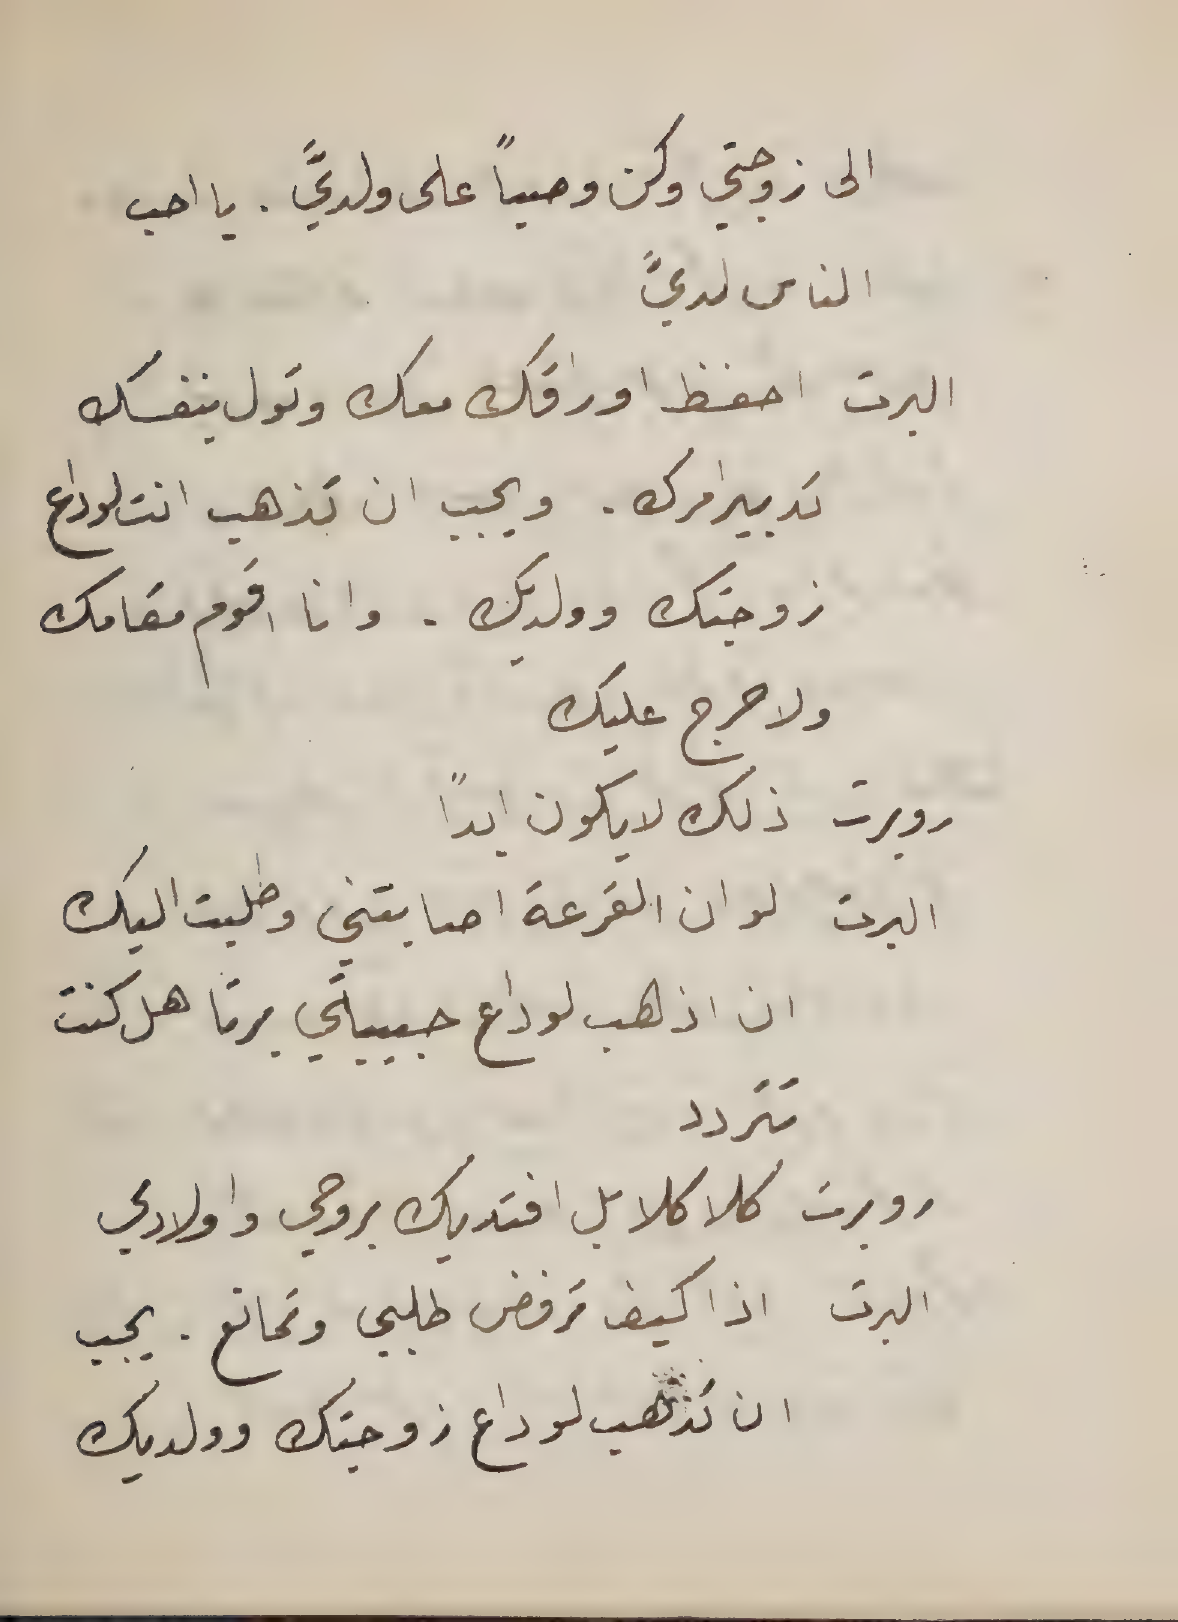 الى زوجتي وكن وصياً على ولديَّ . يا احب
الناس لديَّ
البرت احفظ اوراقك معك وتول بنفسك
تدبير امرك . ويجب ان تذهب انت لوداع
زوجتك وولديك . وانا اقوم مقامك
ولا حرج عليك
روبرت ذلك لا يكون ابداً
البرت لو ان القرعة اصابتني وطلبت اليك
ان اذهب لوداع حبيباتي برتا هل كنت
تتردد
روبرت كلا كلا بل افتديك بروحي واولادي
البرت اذا كيف ترفض طلبي وتمانع . يجب
ان تذهب لوداع زوجتك وولديك